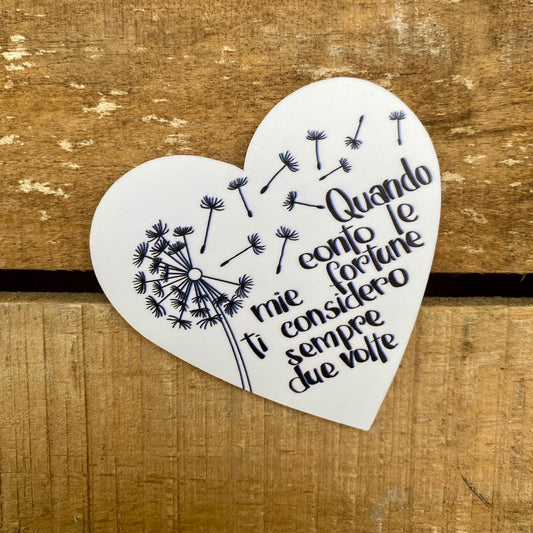 Quando
conto le
fortune
mie
ti considero
sempre
due volte